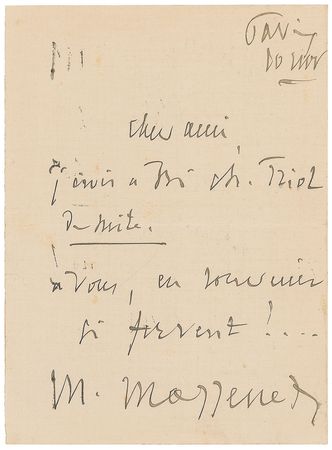 Paris
10 nov
cher ami,
J'écris à
de suite.
à vous, en souvenir
si fervent !....
M. Massenet